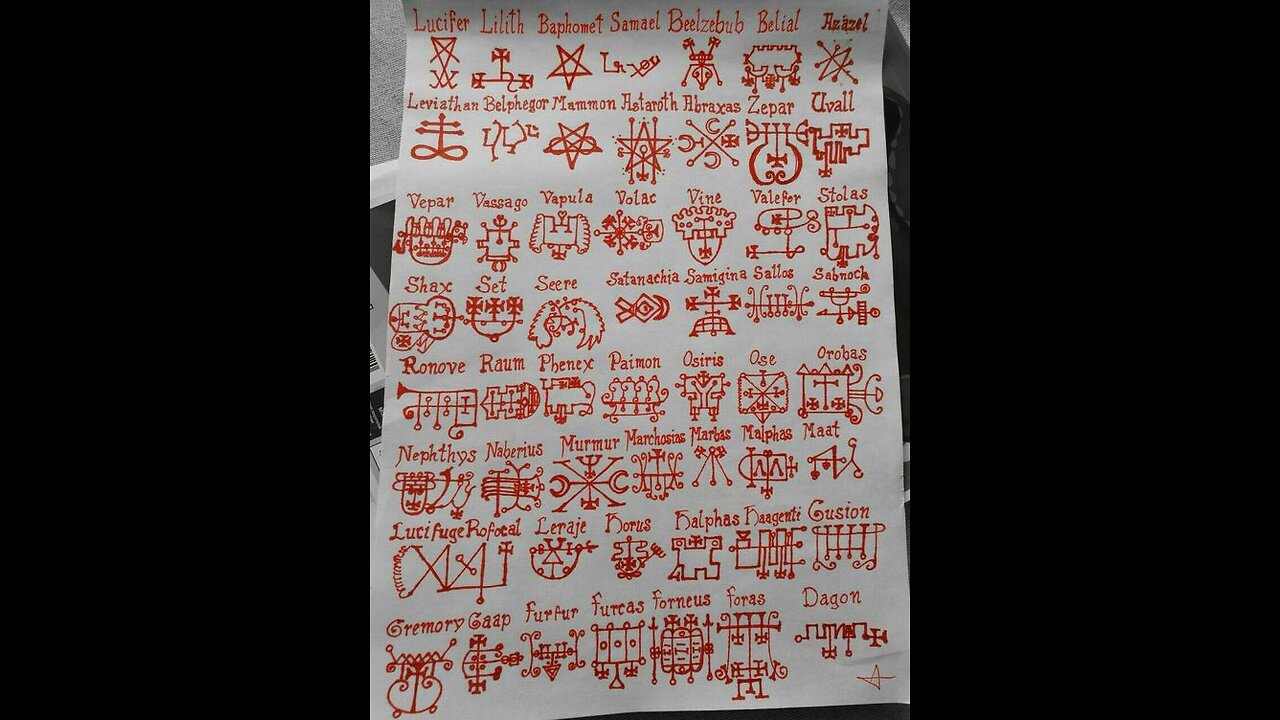 Lucifer Lilith Baphomet Samael Beelzebub Belial Azazel
Leviathan Belphegor Mammon Astaroth Abraxas Zepar Uvall
Vepar Vassago Vapula Volac Vine Valefor Stolas
Shax Set Seere Satanachia Samigina Sallos Sabnock
Ronove Raum Phenex Paimon Osiris Ose Orobas
Nephthys Naberius Murmur Marchosias Marbas Malphas Maat
Lucifuge Rofocal Leraje Horus Halphas Haagenti Gusion
Gremory Gaap Furfur Furcas Forneus Foras Dagon